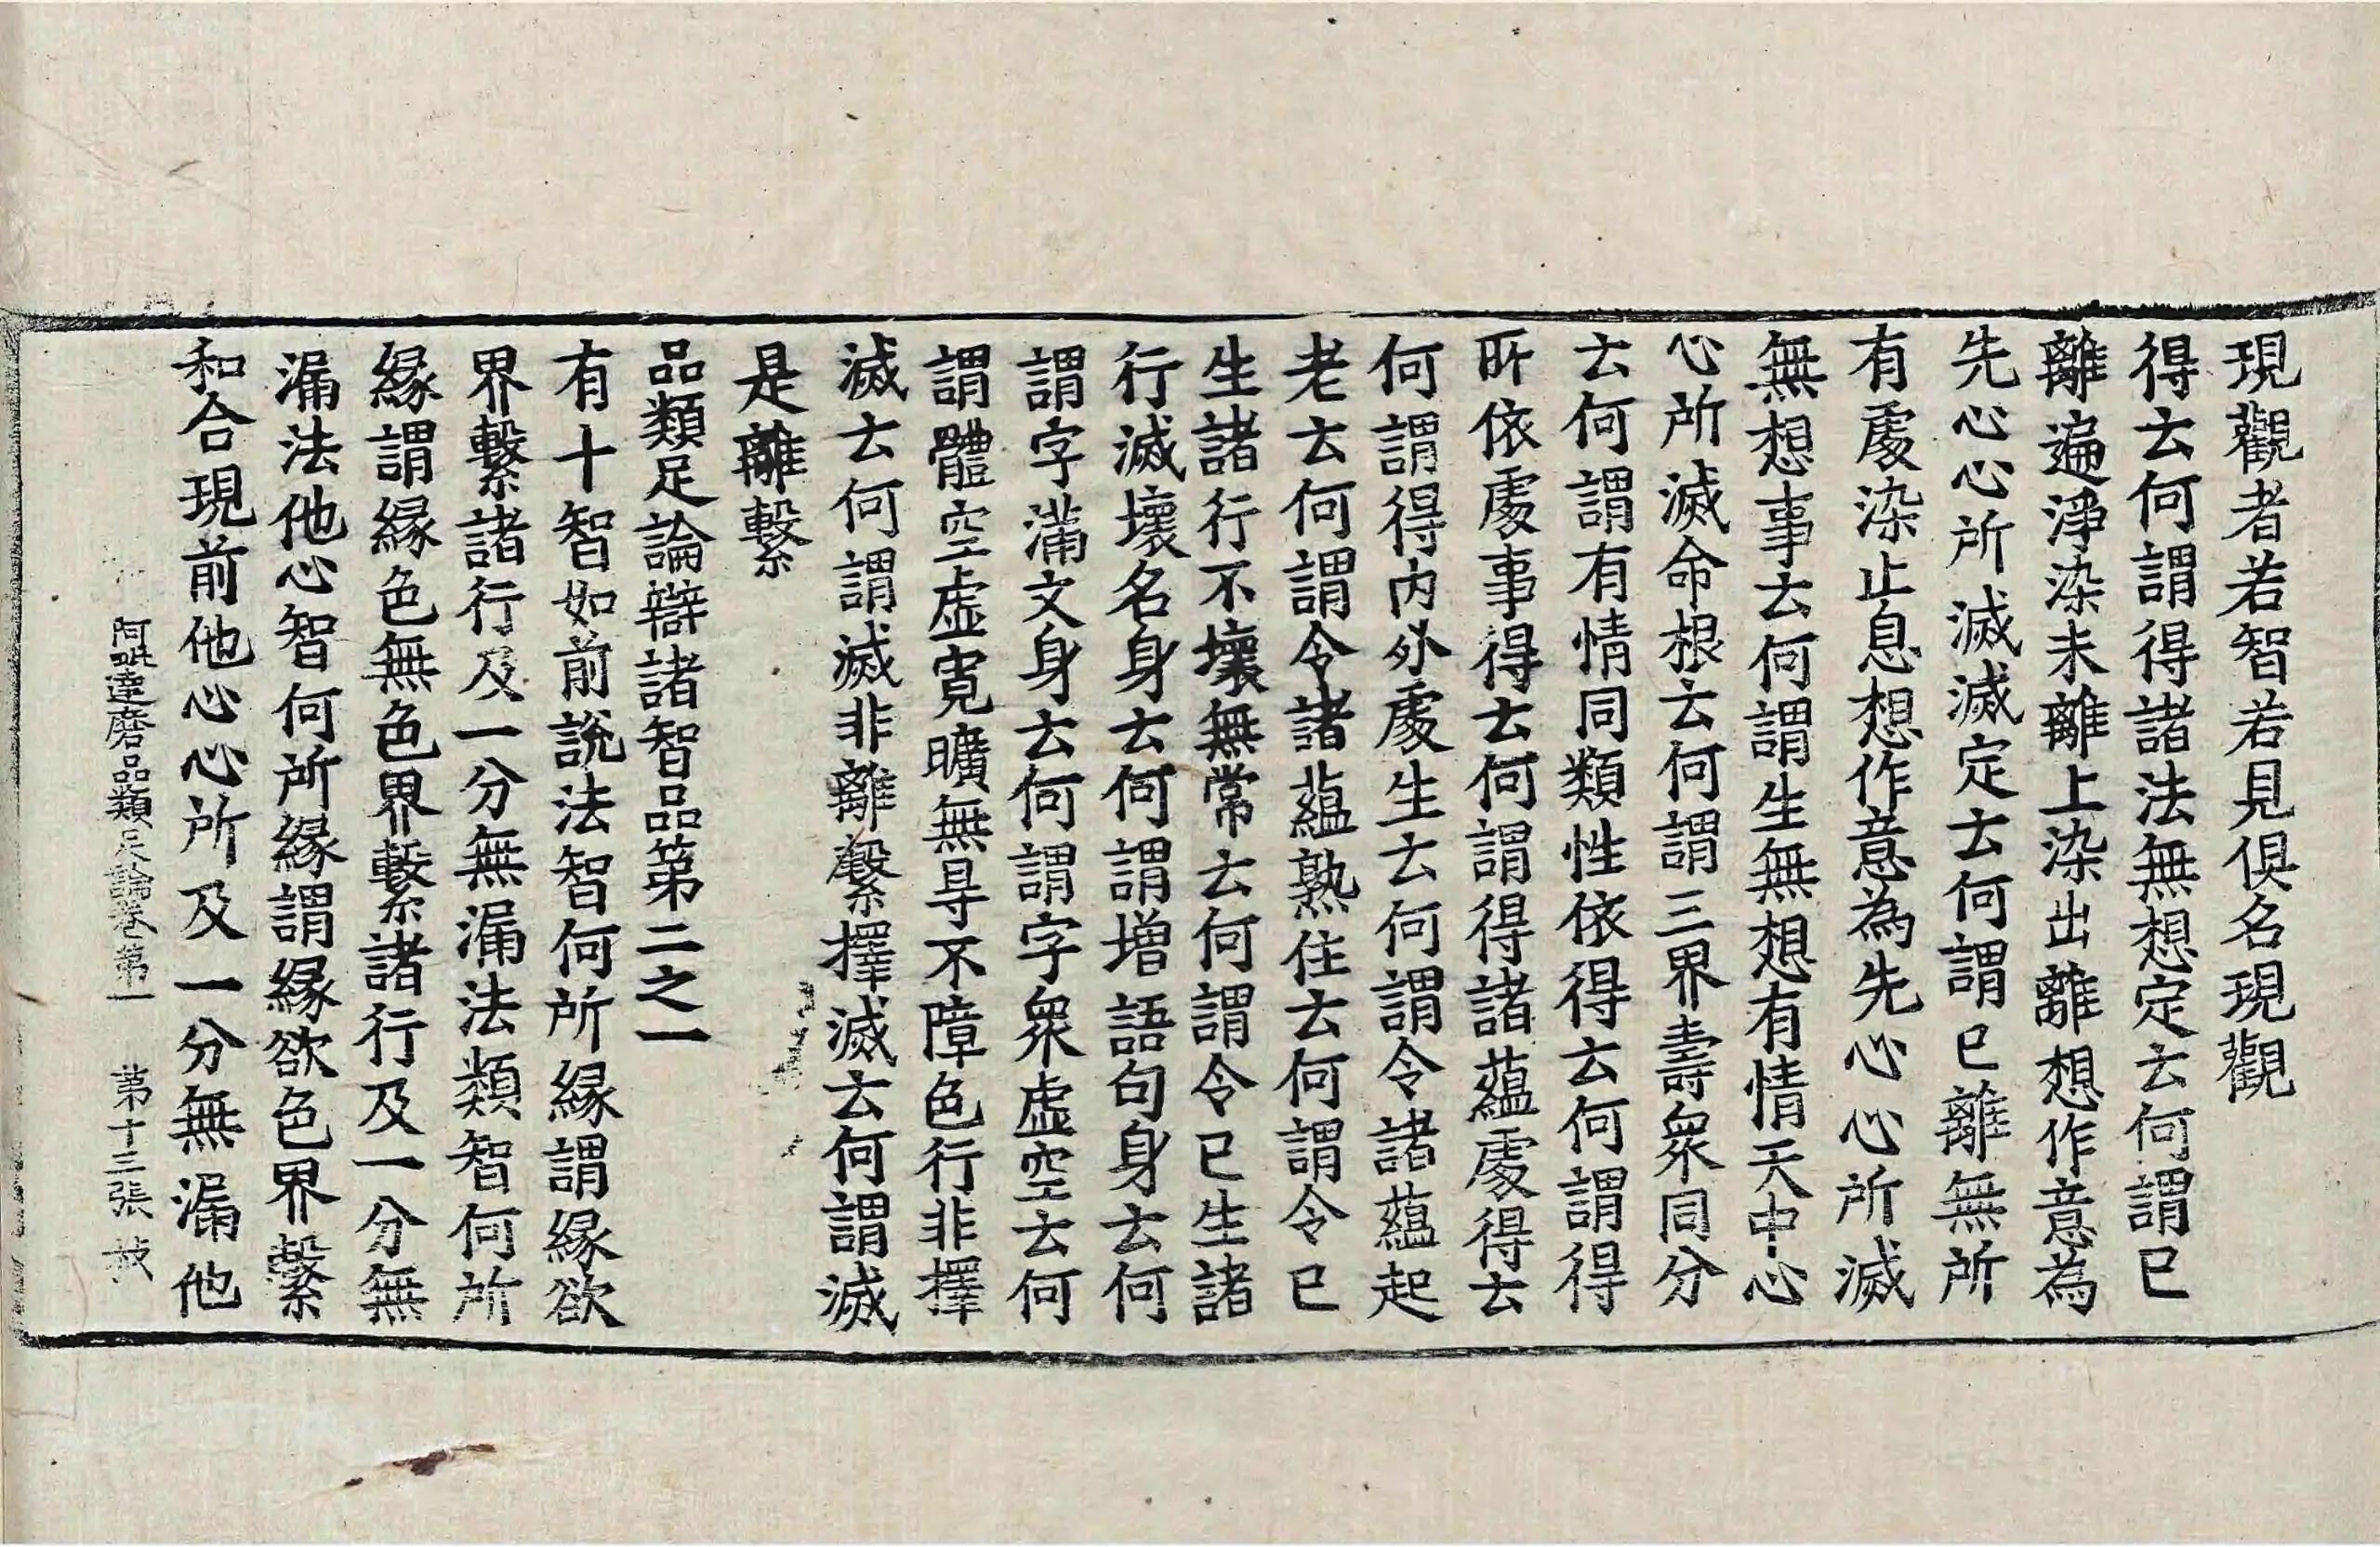 現觀者若智若見俱名現觀
得去何謂得諸法無想定去何謂已
離遍淨染未離上染出離想作意為
先心心所滅滅定去何謂已離無所
有處染止息想作意為先心心所滅
無想事去何謂生無想有情天中心
心所滅命根去何謂三界壽衆同分
去何謂有情同類性依得去何謂得
所依處事得去何謂得諸蘊處得去
何謂得內外處生去何謂令諸蘊起
老去何謂令諸蘊熟住去何謂令已
生諸行不壞無常去何謂令已生諸
行滅壞名身去何謂增語句身去何
謂字滿文身去何謂字衆虛空去何
謂體空虛寬曠無㝵不障色行非擇
滅去何謂滅非離繫擇滅去何謂滅
是離繫
品類足論辯諸智品第二之一
有十智如前說法智何所緣謂緣欲
界繫諸行及一分無漏法類智何所
緣謂緣色無色界繫諸行及一分無
漏法他心智何所緣謂緣欲色界繫
和合現前他心心所及一分無漏他
阿毗達磨品類足論卷第一 第十三張